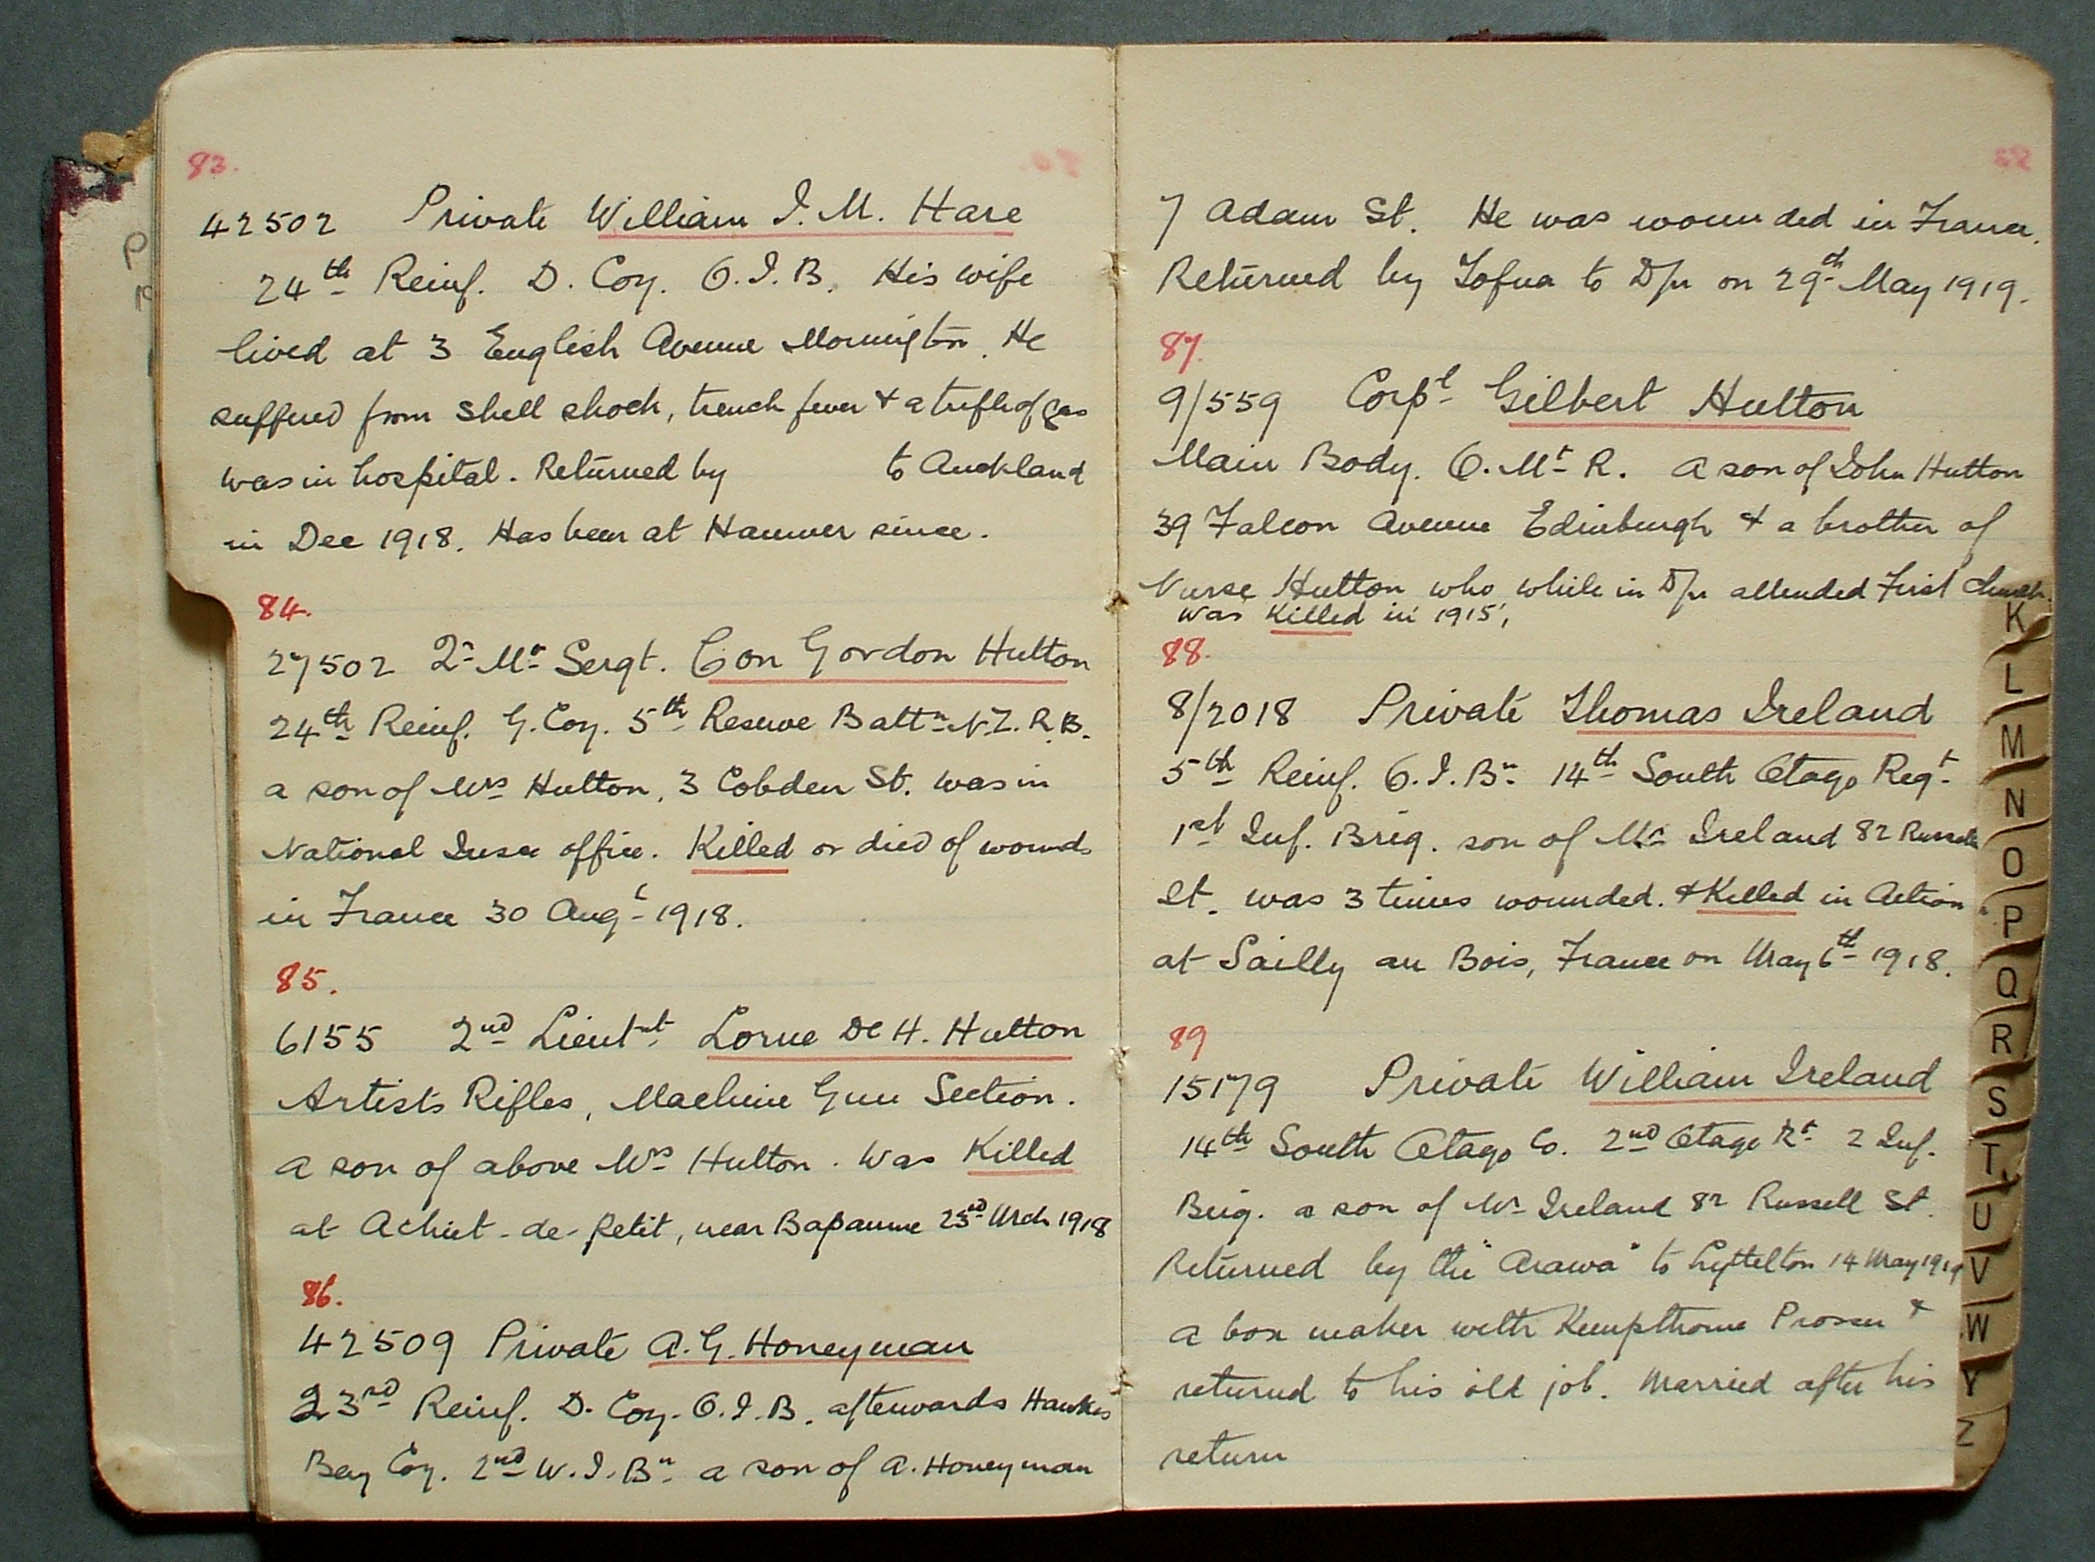 83.
42502 Private William I. M. Hare
24th Reinf. D. Coy. O.I.B. His wife
lived at 3 English Avenue Mornington. He
suffered from shell shock, trench fever & a trifle of gas
was in hospital. Returned by to Auckland
in Dec 1918. Has been at Hanmer since.
84.
27502 Qr Mr Sergt. Con Gordon Hutton
24th Reinf. G. Coy. 5th Reserve Battn N.Z.R.B.
a son of Mrs Hutton, 3 Cobden St. was in
National Insce office. Killed or died of wounds
in France 30 Augt 1918.
85.
6155 2nd Lieutnt Lorne De H. Hutton
Artists Rifles, Machine Gun Section.
a son of above Mrs Hutton. Was Killed
at Achiet-de-Petit, near Bapaume 23rd Mch 1918
86.
42509 Private A. G. Honeyman
23rd Reinf. D. Coy. O.I.B. afterwards Hawkes
Bay Coy. 2nd W.I.Bn a son of A. Honeyman
7 Adam St. He was wounded in France.
Returned by Tofua to D/n on 29th May 1919.
87.
9/559 Corpl Gilbert Hutton
Main Body. O. Mt R. a son of John Hutton
39 Falcon Avenue Edinburgh & a brother of
Nurse Hutton who while in D/n attended First Church.
was Killed in 1915,
88.
8/2018 Private Thomas Ireland
5th Reinf. O.I.Bn 14th South Otago Regt
1st Inf. Brig. son of Mr Ireland 82 Russell
St. was 3 times wounded. & Killed in Action
at Sailly au Bois, France on May 6th 1918.
89
15179 Private William Ireland
14th South Otago Co. 2nd Otago Rt 2 Inf.
Brig. a son of Mr Ireland 82 Russell St.
Returned by the "Arawa" to Lyttelton 14 May 1919
a box maker with Kempthorne Prosser &
returned to his old job. Married after his
return
K
L
M
N
O
P
Q
R
S
T
U
V
W
Y
Z